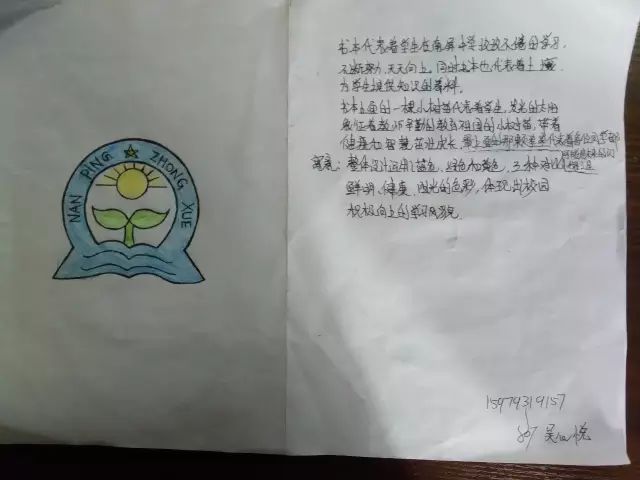 NAN PING ZHONG XUE
书本代表着学生在南屏中学孜孜不倦的学习,
不断努力,天天向上,同时书本也代表着土壤,
为学生提供知识的养料。
书本上面的一棵小树苗代表着学生,发光的太阳
象征着教师辛勤的教育祖国的小树苗,带着
健康和智慧茁壮成长,最上面的那颗星星代表着
寓意:整体设计运用了蓝色、绿色和黄色,三种
鲜明、健康、阳光的色彩,体现出校园
积极向上的学习风貌。
15979319157
807 吴